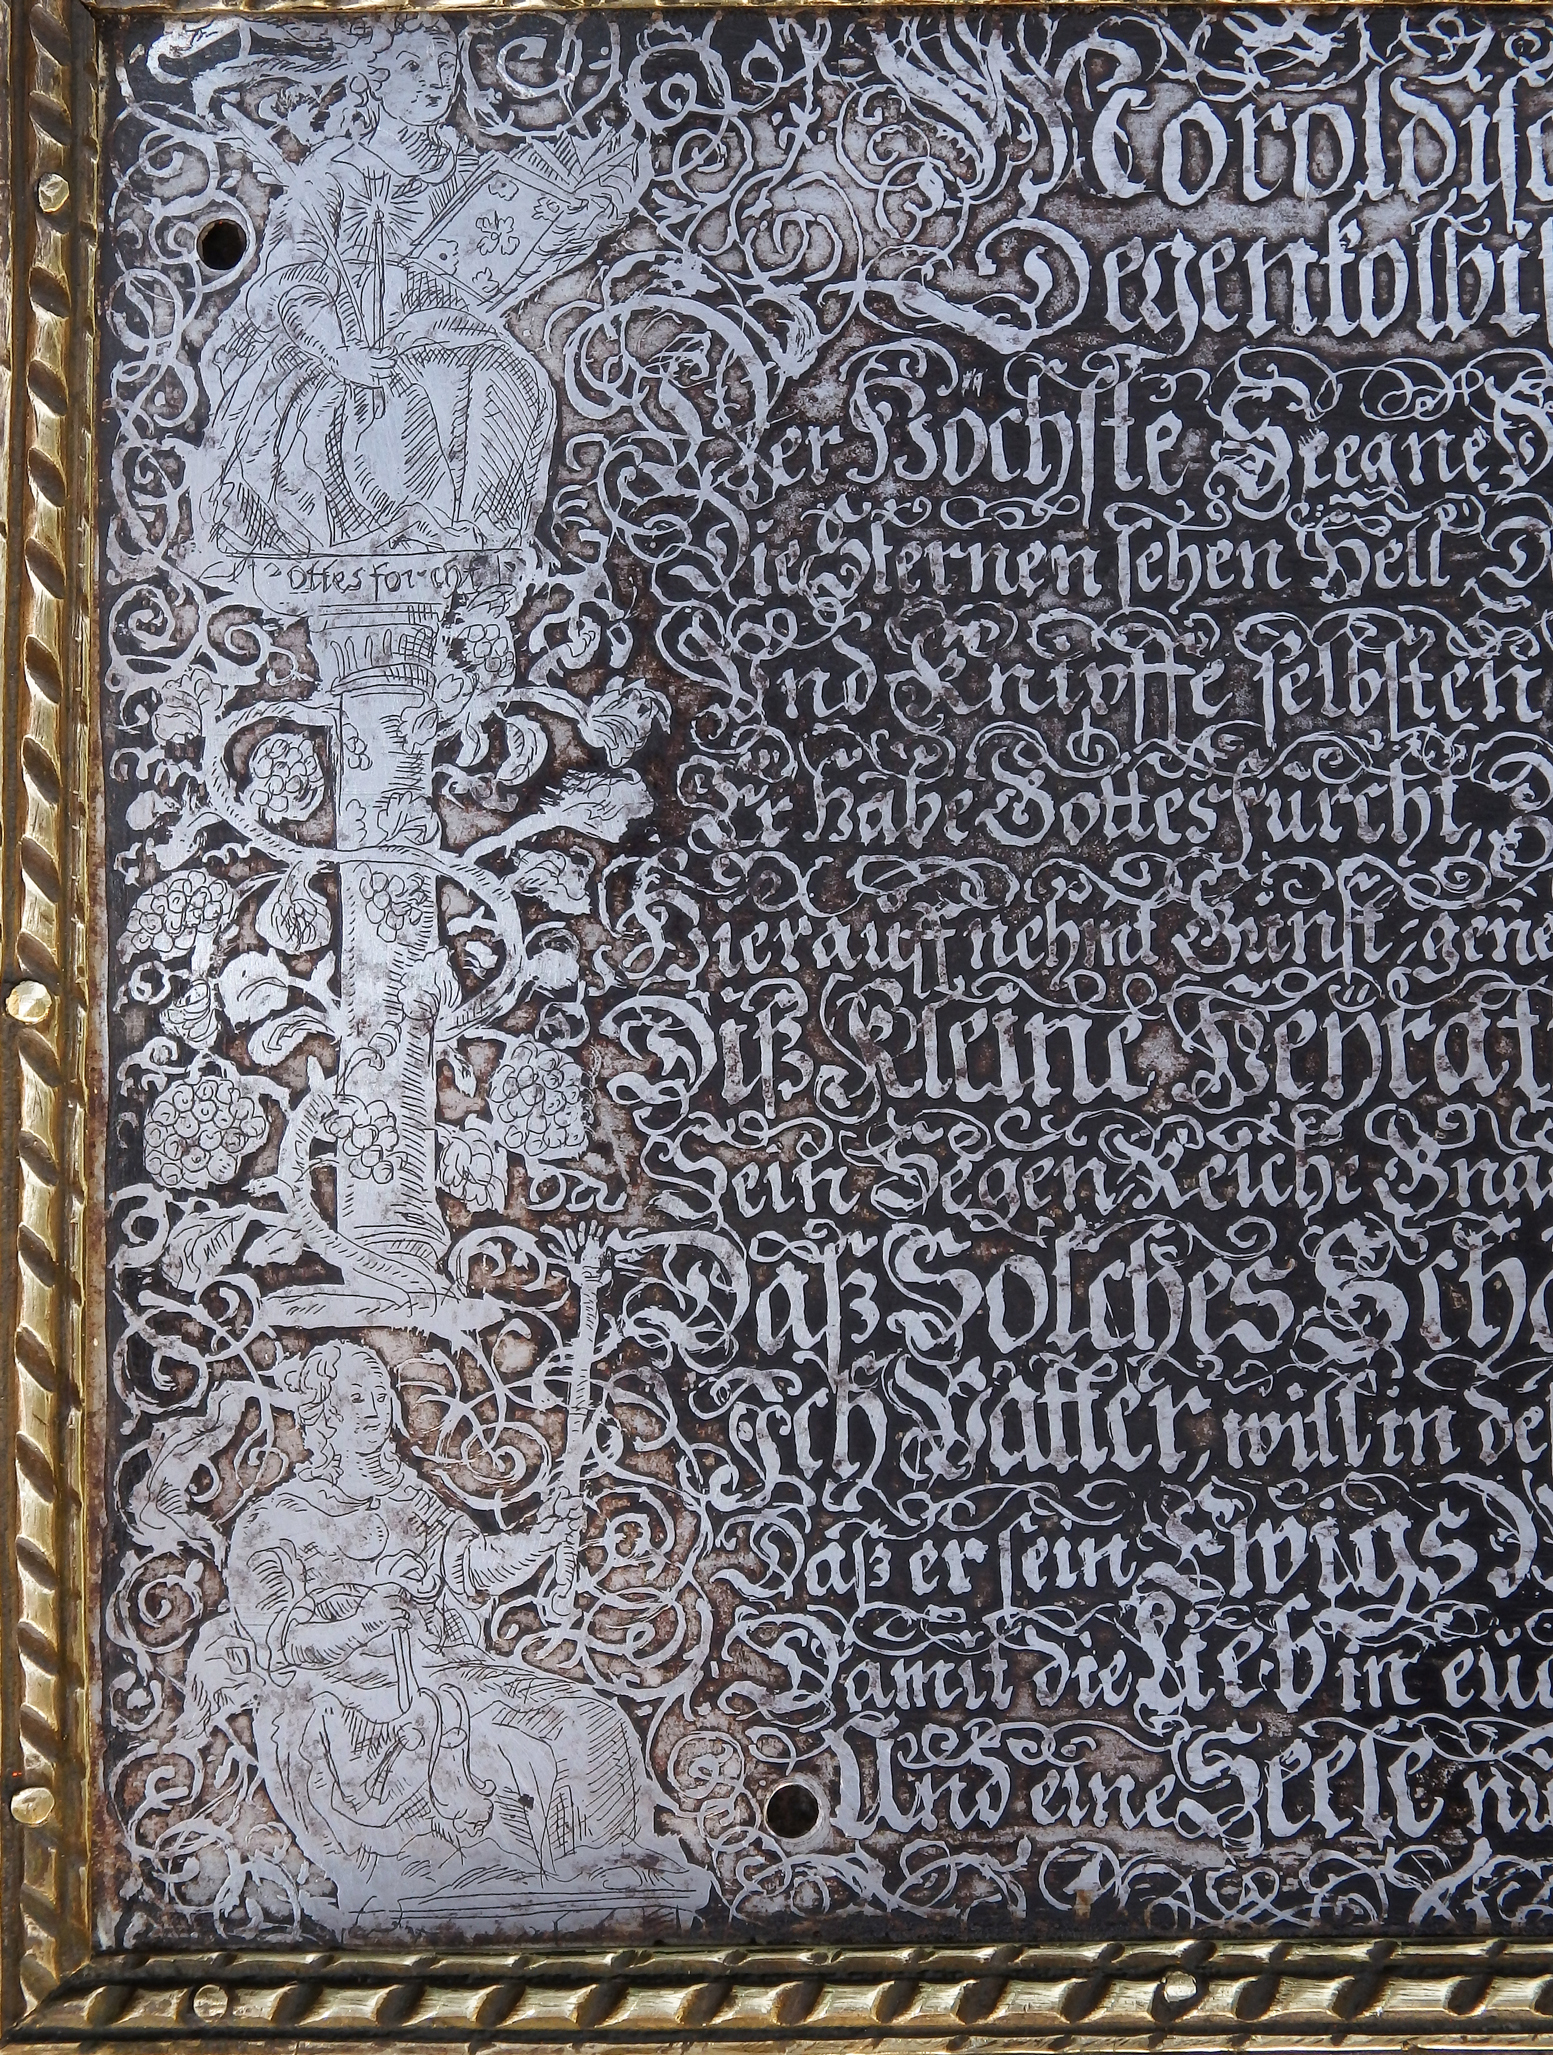 Heroldisch
Degenkolbi
Der Höchste Seegne
Die Sternen sehen Hell
Und Knipffe selbsten
Er habe Gottesfurcht,
Hierauff nehmt Gunst-gene
Diß Kleine Heyrat
Sein Segen Reich: Gna
Daß Solches Scha
Ich Vatter, will in de
Daß er sein Ewigs
Damit die Lieb in eüc
Und eine Seele
Gottesforcht